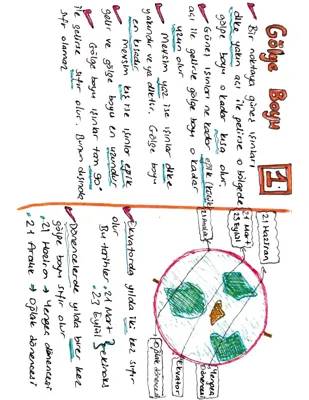 Gölge Boyu
1
Bir noktaya güneş ışınları
dike yakın açı ile gelirse o bölgede
gölge boyu o kadar kısa olur.
Güneş ışınları ne kadar eğik (küçük)
açı ile gelirse gölge boyu o kadar
uzun olur
Mevsim yaz ise ışınlar dike
yakındır ve ya diktir. Gölge boyu
en kısadır.
Mevsim kış ise ışınlar eğik
gelir ve gölge boyu en uzundur.
Gölge boyu ışınlar tam 90°
ile gelirse sıfır olur. Bunun dışında
sıfır olamaz
21 Haziran
21 Mart
23 Eylül
21 Aralık
Yengeç
dönencesi
Ekvator
Oğlak dönencesi
Ekvatorda yılda iki kez sıfır
olur
Bu tarihler • 21 Mart
• 23 Eylül
} ekinoks
Dönencelerde yılda birer kez
gölge boyu sıfır olur
• 21 Haziran → Yengeç dönencesi
• 21 Aralık → Oğlak dönencesi